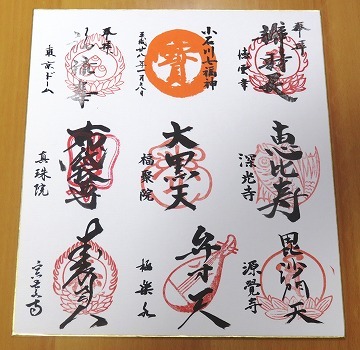 奉拝
辯財天
徳雲寺
小石川七福神
寶
平成廿八年一月三日
奉拝
福禄寿
東京ドーム
恵比寿
深光寺
大黒天
福聚院
布袋尊
真珠院
毘沙門天
源覚寺
弁才天
極楽水
寿老人
宗慶寺